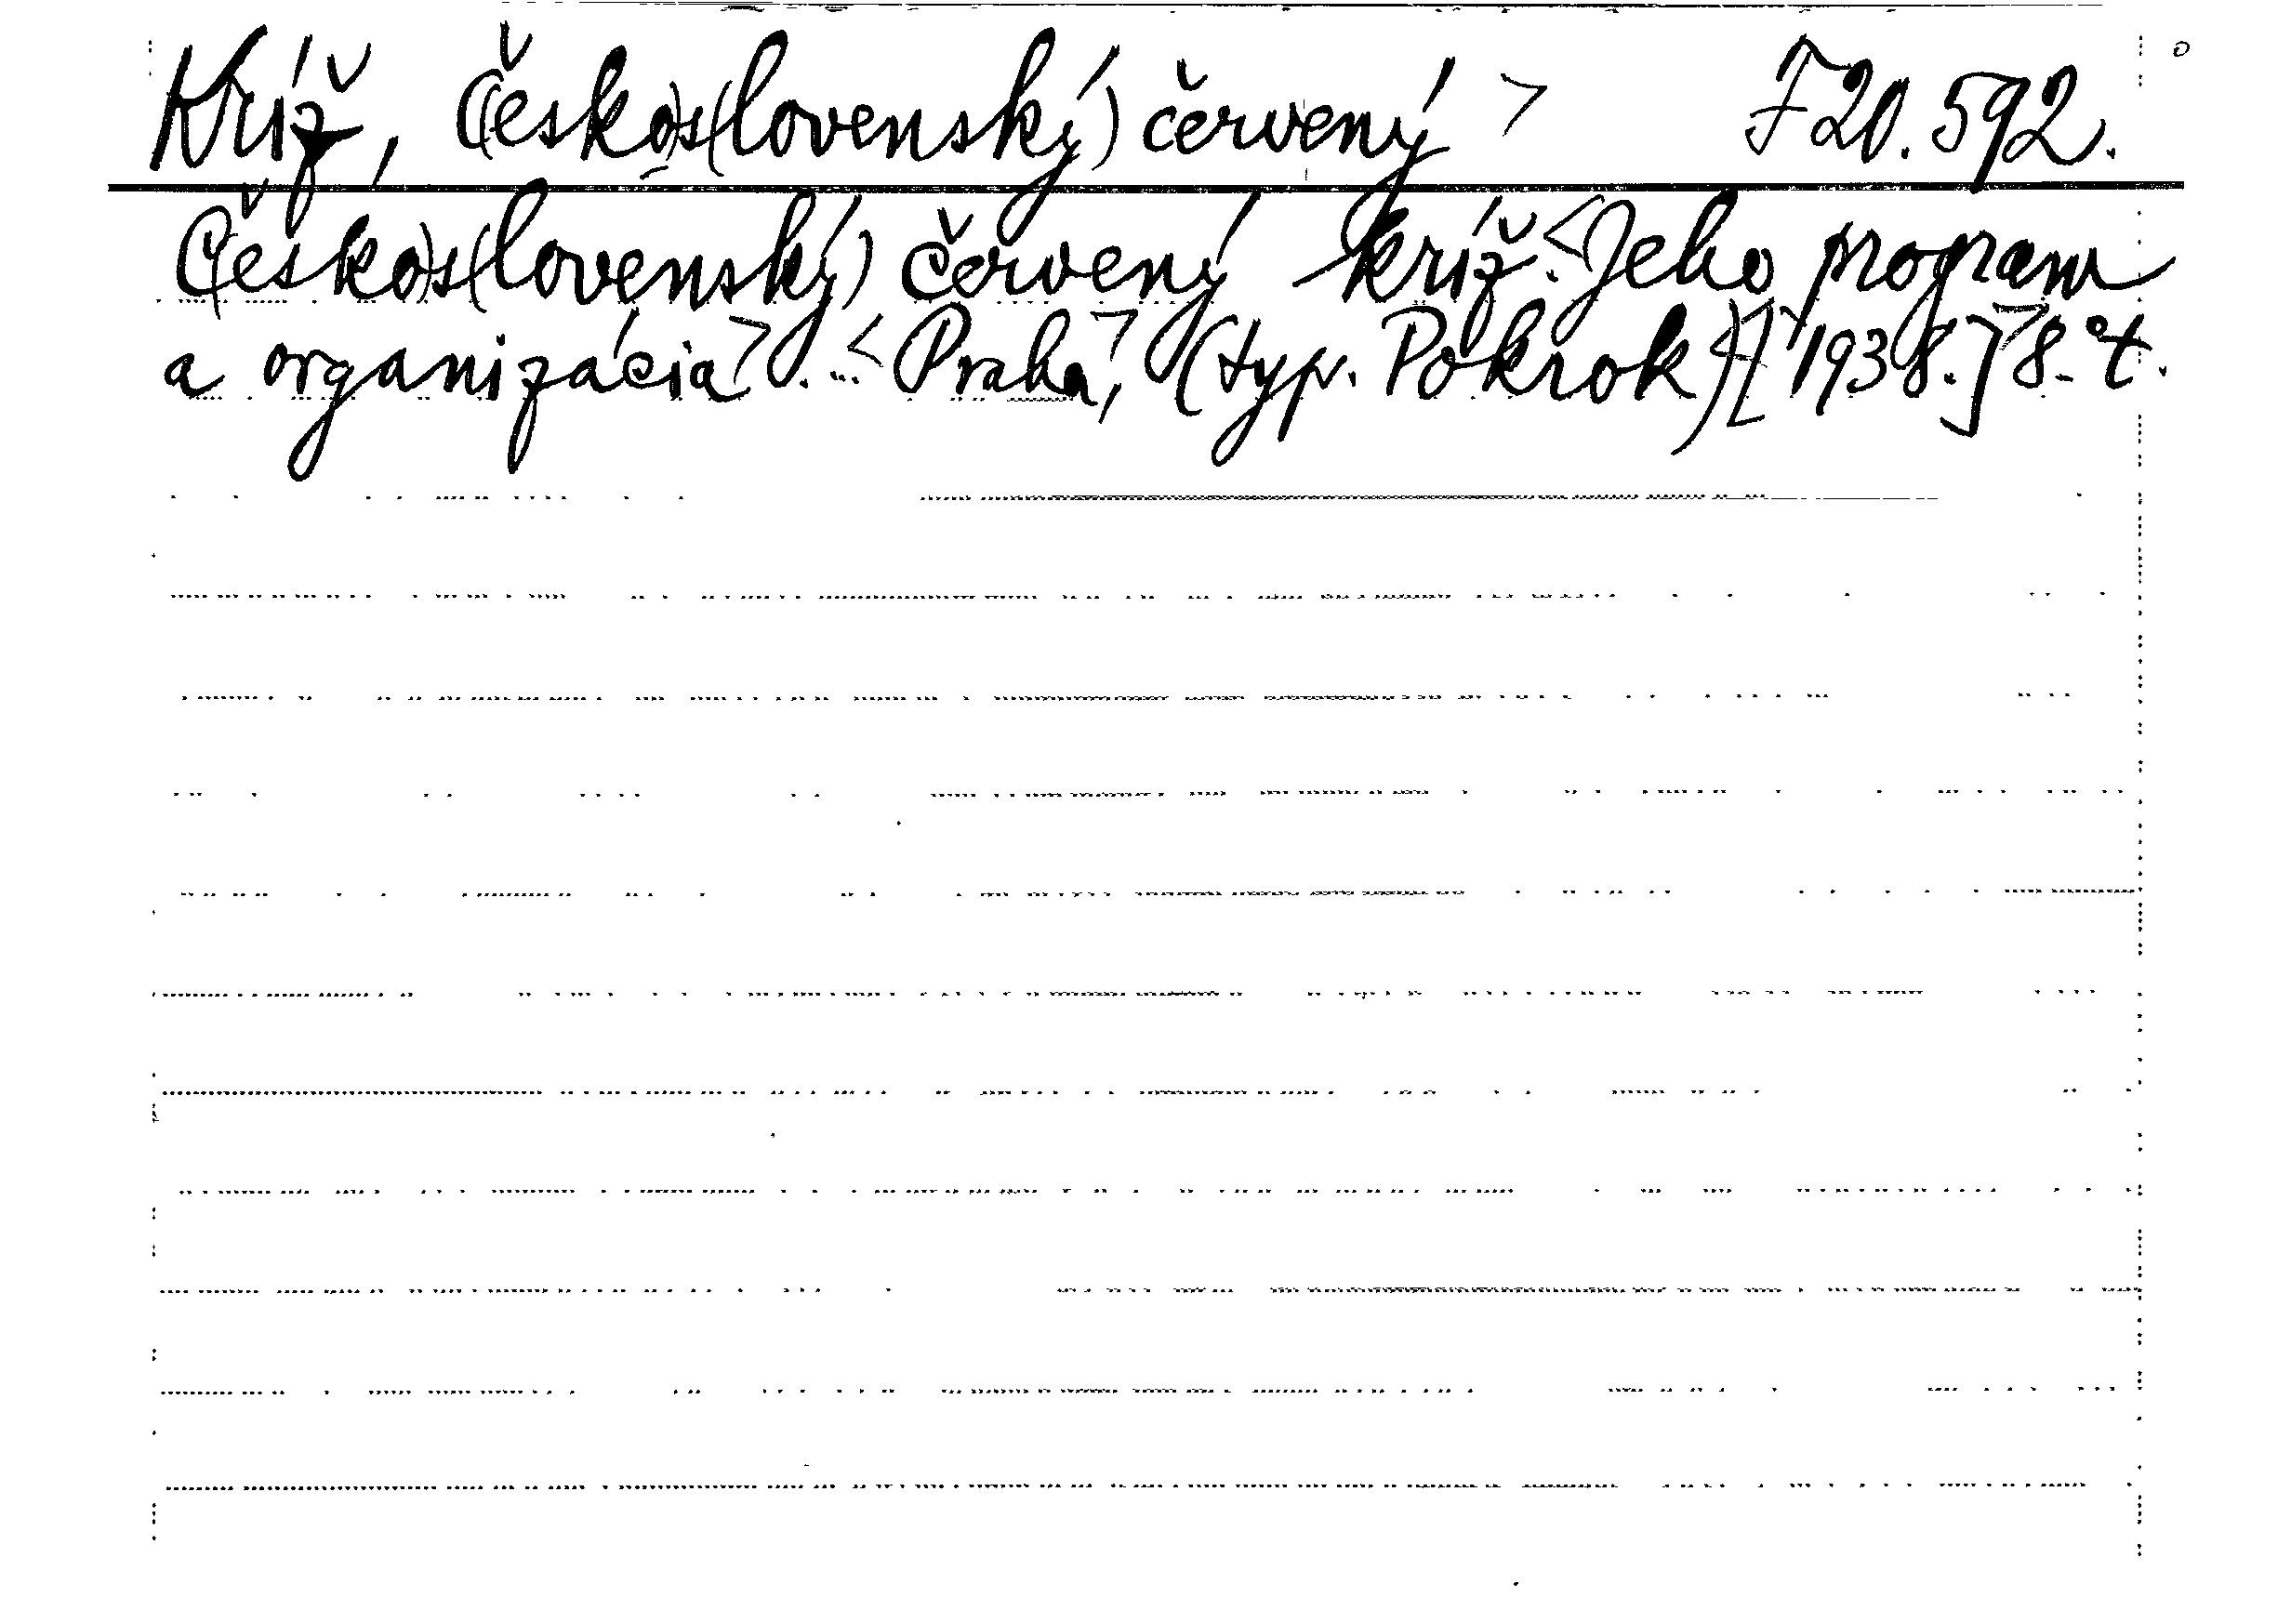 Kríž, Č(esko)s(lovenský) červený > F20.592.
Č(esko)s(lovenský) červený kríž. <Jeho program
a organizácia>. ... <Praha, (typ. Pokrok) [1938.]> 8° t.